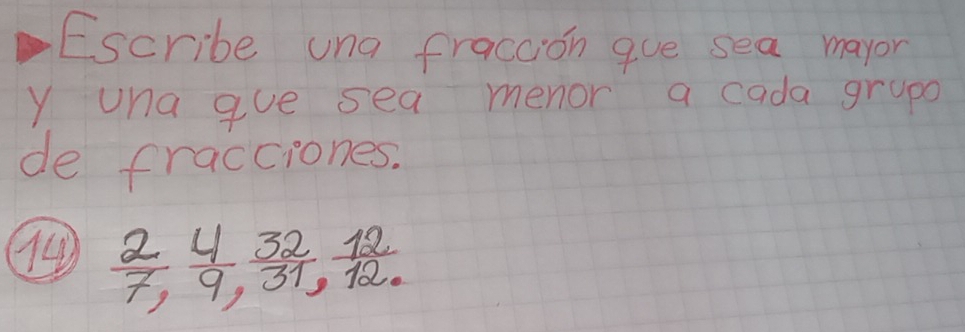 Escribe una fracción que sea mayor
y una que sea menor a cada grupo
de fracciones.
14 2/7, 4/9, 32/31, 12/12.